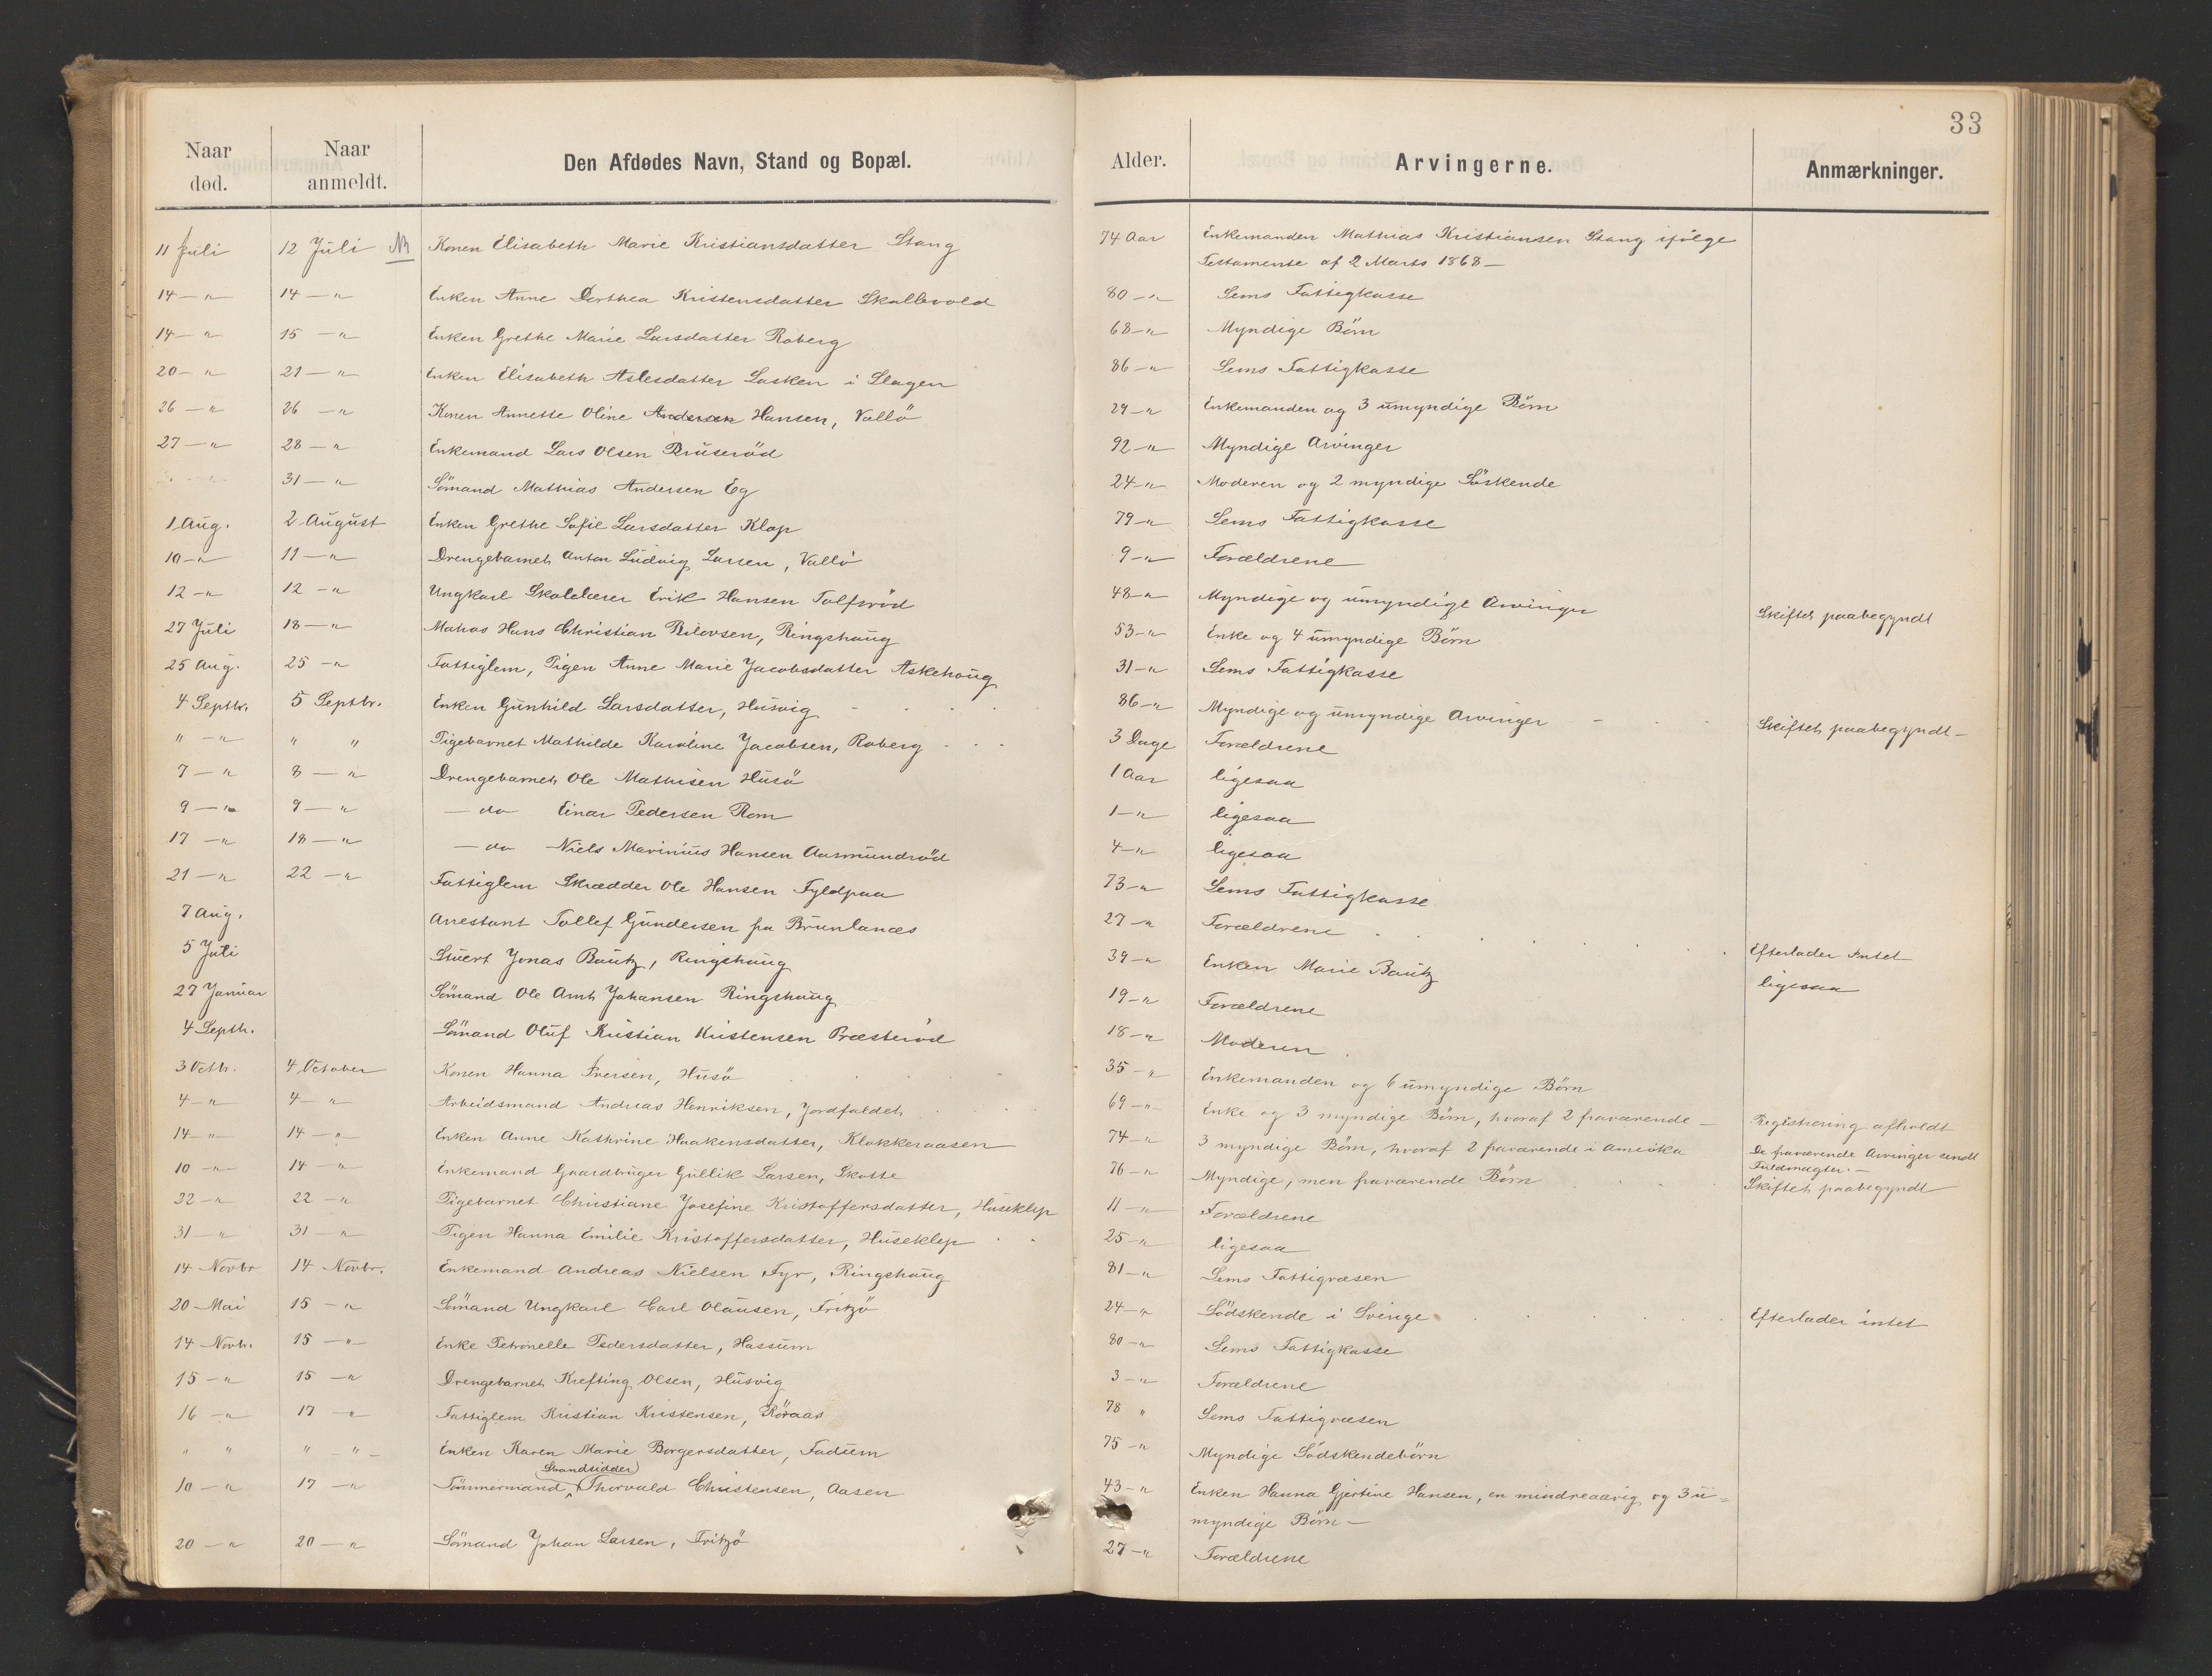 33
Naar død. Naar anmeldt. Den Afdødes Navn, Stand og Bopæl. Alder. Arvingerne. Anmærkninger.
11 Juli 12 Juli Konen Elisabeth Marie Kristiansdatter Stang 74 Aar Enkemanden Mathias Kristiansen Stang ifølge
Testamente af 2 Marts 1868 —
14 — " 14 — " Enken Anne Dorthea Kristensdatter Skallevold 80 — " Sems Fattigkasse
14 — " 15 — " Enken Grethe Marie Larsdatter Roberg 68 — " Myndige Børn
20 — " 21 — " Enken Elisabeth Aslesdatter Lasken i Slagen 86 — " Sems Fattigkasse
26 — " 26 — " Konen Annette Oline Andersen Hansen, Vallö 29 — " Enkemanden og 3 umyndige Børn
27 — " 28 — " Enkemand Lars Olsen Bruseröd 92 — " Myndige Arvinger
31 — " Sömand Mathias Andersen Eg 24 — " Moderen og 2 myndige Söskende
1 Aug. 2 August Enken Grethe Sofie Larsdatter Klop 79 — " Sems Fattigkasse
10 — " 11 — " Drengebarnet Anton Ludvig Larsen, Vallö 9 — " Forældrene
12 — " 12 — " Ungkarl Skolelærer Erik Hansen Tolfsröd 48 — " Myndige og umyndige Arvinger Skiftet paabegyndt
27 Juli 18 — " Matros Hans Christian Reiersen, Ringshaug 53 — " Enke og 4 umyndige Børn
25 Aug. 25 — " Fattiglem, Pigen Anne Marie Jacobsdatter Askehoug 31 — " Sems Fattigkasse
4 Septbr. 5 Septbr. Enken Gunhild Larsdatter, Husvig 86 — " Myndige og umyndige Arvinger Skiftet paabegyndt —
" — " " " Pigebarnet Mathilde Karoline Jacobsen, Roberg 3 Dage Forældrene
7 — " 8 — " Drengebarnet Ole Mathisen Husö 1 Aar ligesaa
9 — " 9 — " — do Einar Pedersen Rom 1 — " ligesaa
17 — " 18 — " — do Niels Marinius Hansen Aasmundröd 4 — " ligesaa
21 — " 22 — " Fattiglem Skrædder Ole Hansen Fyldpaa 73 — " Sems Fattigkasse
7 Aug. Arrestant Tollef Gundersen fra Brunlanæs 27 — " Forældrene
5 Juli Stuert Jonas Bautz, Ringshaug 39 — " Enken Marie Bautz Efterlader Intet
27 Januar Sömand Ole Amt Johansen Ringshaug 19 — " Forældrene ligesaa
4 Septb. Sömand Oluf Kristian Kristensen Præsteröd 18 — " Moderen
3 Octb. 4 October Konen Hanna Iversen, Husö 35 — " Enkemanden og 6 umyndige Børn
4 — " 4 — " Arbeidsmand Andreas Henriksen, Jordfaldet 69 — " Enke og 3 myndige Børn, hvoraf 2 fraværende — Registrering afholdt
14 — " 14 — " Enken Anne Kathrine Haakensdatter, Klokkeraasen 74 — " 3 myndige Børn, hvoraf 2 fraværende i Amerika De fraværende Arvinger sendt
Fuldmagter. —
10 — " 14 — " Enkemand Gaardbruger Gullik Larsen, Skotte 76 — " Myndige, men fraværende Børn Skiftet paabegyndt
22 — " 22 — " Pigebarnet Christiane Josefine Kristoffersdatter, Huseklep 11 — " Forældrene
31 — " 31 — " Pigen Hanna Emilie Kristoffersdatter, Huseklep 25 — " ligesaa
14 Novbr 14 Novbr. Enkemand Andreas Nielsen Fyr, Ringshaug 81 — " Sems Fattigvæsen
20 Mai 15 — " Sömand Ungkarl Carl Olausen, Fritzö 24 — " Södskende i Sverige Efterlader intet
14 Novb. 15 — " Enke Petronelle Pedersdatter, Hassum 80 — " Sems Fattigkasse
15 — " 15 — " Drengebarnet Krefting Olsen, Husvig 3 — " Forældrene
16 — " 17 — " Fattiglem Kristian Kristensen, Röraas 78 " Sems Fattigvæsen
" " " — " — Enken Karen Marie Borgersdatter, Fadum 75 — " Myndige Södskendebörn
Strandsidder
10 — " 17 — " Tömmermand, Thorvald Christensen, Aasen 43 — " Enken Hanna Gjertine Hansen, en mindreaarig og 3 u=
myndige Børn —
20 — " 20 — " Sömand Johan Larsen, Fritzö 27 — " Forældrene